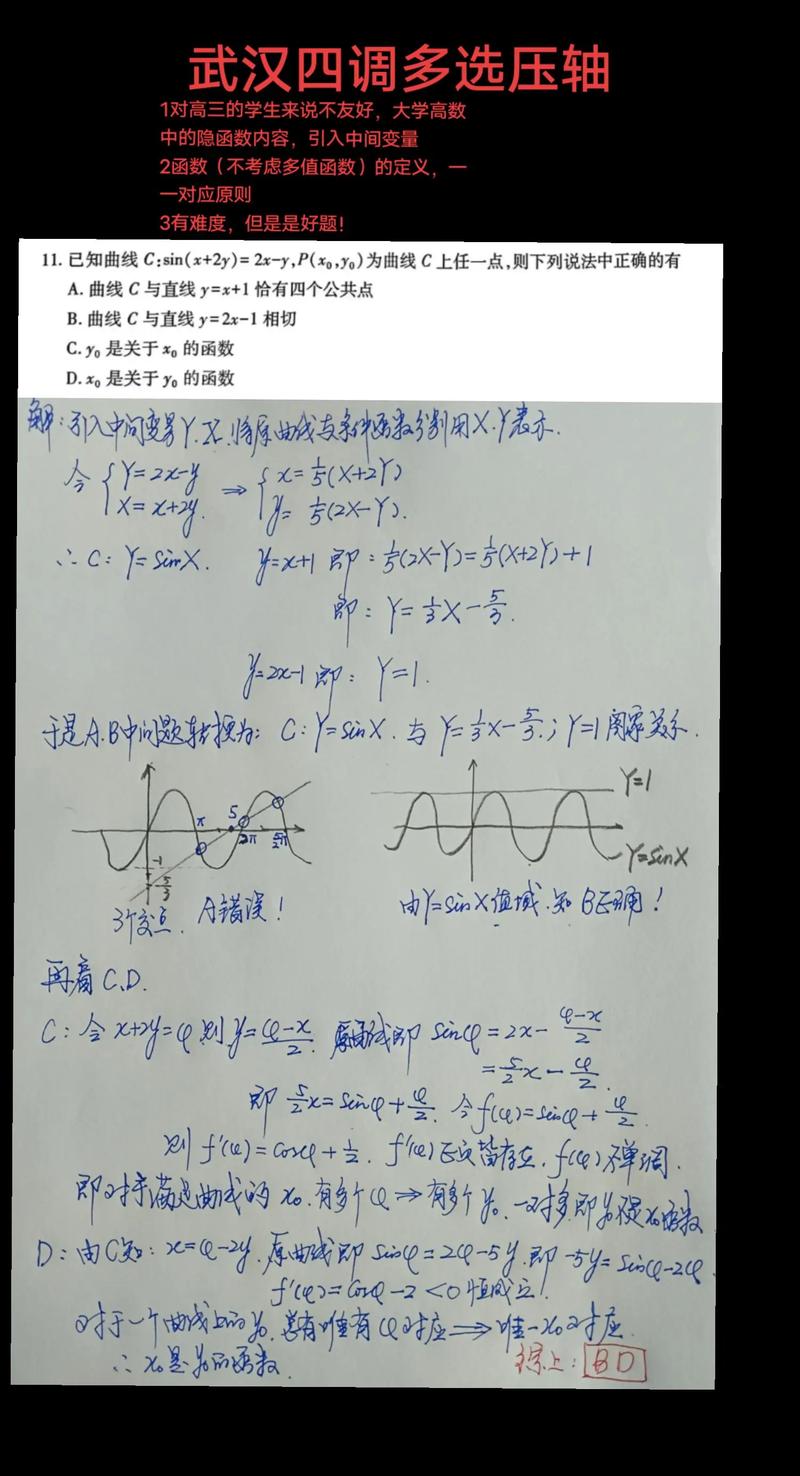 武汉四调多选压轴
1对高三的学生来说不友好，大学高数
中的隐函数内容，引入中间变量
2函数（不考虑多值函数）的定义，一
一对应原则
3有难度，但是是好题！
11. 已知曲线 C:sin(x+2y)= 2x-y,P(x₀,y₀)为曲线 C 上任一点,则下列说法中正确的有
A. 曲线 C 与直线 y=x+1 恰有四个公共点
B. 曲线 C 与直线 y=2x-1 相切
C. y₀ 是关于 x₀ 的函数
D. x₀ 是关于 y₀ 的函数
解：引入中间变量Y.X.将原曲线与条件函数分别用X.Y表示.
令 { Y=2x-y X=x+2y. ⇒ { x=1/5(X+2Y) y=1/5(2X-Y).
∴ C: Y=sinX. y=x+1 即：1/5(2X-Y)=1/5(X+2Y)+1
即：Y=1/3X-5/3.
y=2x-1 即：Y=1.
于是A.B中问题转换为：C:Y=sinX. 与 Y=1/3X-5/3.；Y=1图象关系.
π 5 2π 5/2π -1 -5/3
Y=1
Y=sinX
3个交点. A错误！
由Y=sinX值域.知 B正确！
再看C.D.
C：令 x+2y=φ 则 y=(φ-x)/2. 原曲线即 sinφ=2x-(φ-x)/2
=5/2x-φ/2.
即 5/2x=sinφ+φ/2. 令f(φ)=sinφ+φ/2.
则 f'(φ)=cosφ+1/2. f'(φ)正负皆存在. f(φ)不单调.
即对于满足曲线的 x₀.有多个φ⇒有多个y₀.一对多.即y₀不是x₀函数
D：由C知：x=φ-2y.原曲线即 sinφ=2φ-5y.即-5y=sinφ-2φ.
f'(φ)=cosφ-2<0恒成立.
对于一个曲线上的y₀.总有唯有φ对应⇒唯一x₀对应.
∴ x₀是y₀的函数.
综上：BD